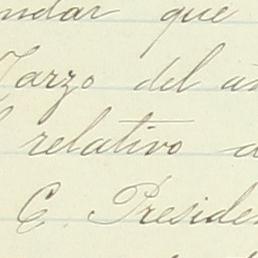 ndar que
Marzo del añ
l relativo a
C. Presiden